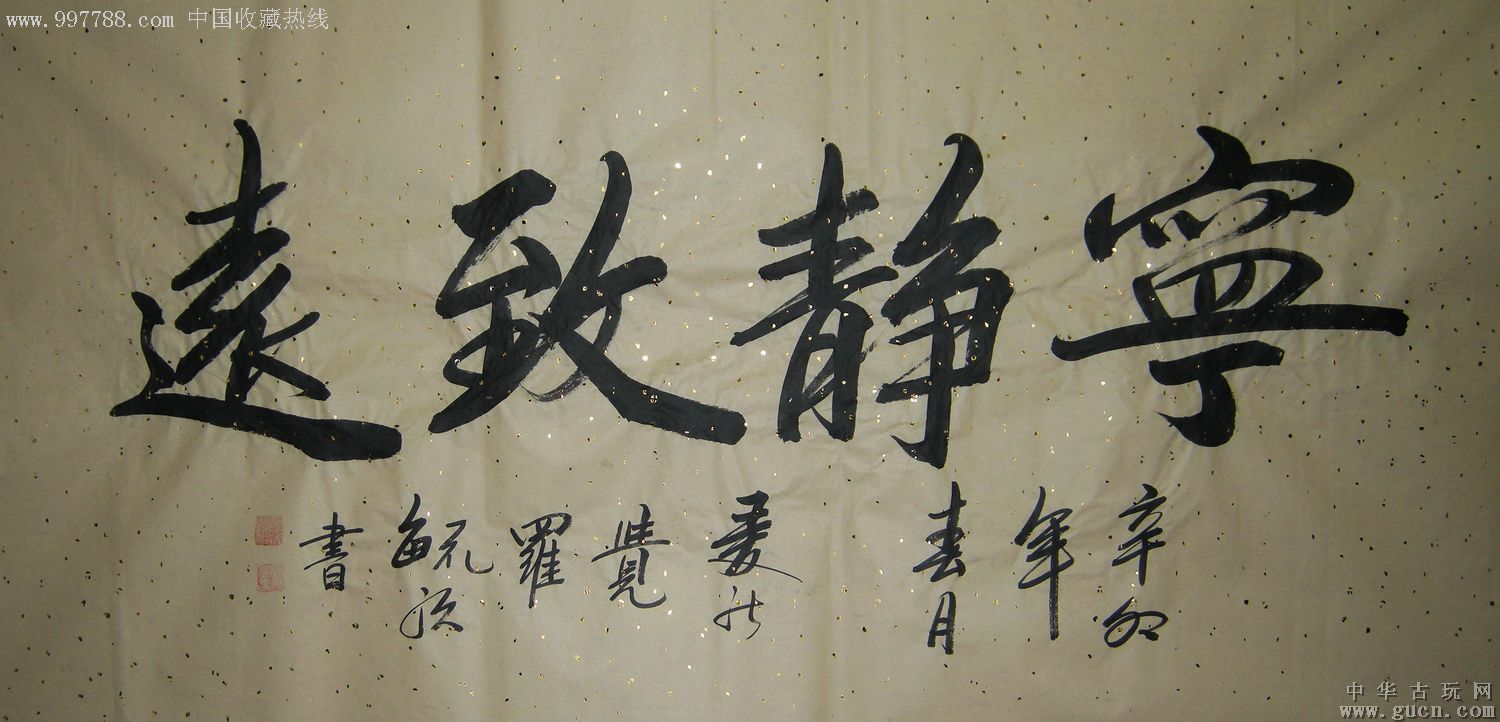 www.997788.com 中国收藏热线
寧静致遠
辛卯
年
春月
愛新
覺
羅
毓
書
中华古玩网
www.gucn.com